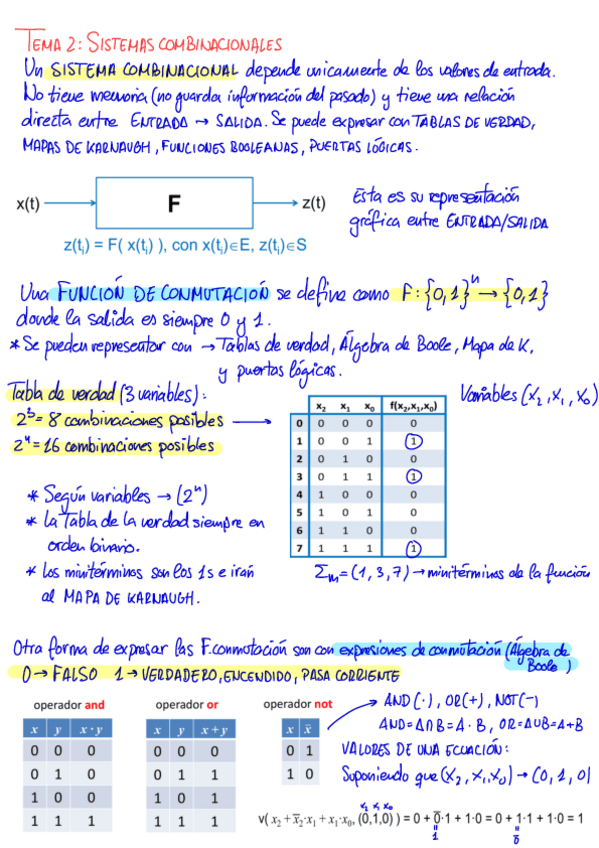 TEMA 2: SISTEMAS COMBINACIONALES
Un SISTEMA COMBINACIONAL depende unicamente de los valores de entrada.
No tiene memoria (no guarda información del pasado) y tiene una relación
directa entre ENTRADA → SALIDA. Se puede expresar con TABLAS DE VERDAD,
MAPAS DE KARNAUGH, FUNCIONES BOOLEANAS, PUERTAS LÓGICAS.
x(t) F z(t)
Esta es su representación
gráfica entre ENTRADA/SALIDA
z(tᵢ) = F( x(tᵢ) ), con x(tᵢ)∈E, z(tᵢ)∈S
Una FUNCIÓN DE CONMUTACIÓN se define como F: {0,1}ⁿ → {0,1}
donde la salida es siempre 0 y 1.
* Se pueden representar con → Tablas de verdad, Álgebra de Boole, Mapa de K,
y puertas lógicas.
Tabla de verdad (3 variables):
2³ = 8 combinaciones posibles →
2⁴ = 16 combinaciones posibles
Variables (x₂, x₁, x₀)
x₂ x₁ x₀ f(x₂,x₁,x₀)
0 0 0 0 0
1 0 0 1 1
2 0 1 0 0
3 0 1 1 1
4 1 0 0 0
5 1 0 1 0
6 1 1 0 0
7 1 1 1 1
* Según variables → (2ⁿ)
* La Tabla de la verdad siempre en
orden binario.
* Los minitérminos son los 1s e irán
al MAPA DE KARNAUGH.
Σm = (1, 3, 7) → minitérminos de la función
Otra forma de expresar las F.conmutación son con expresiones de conmutación (Álgebra de
Boole)
0 → FALSO 1 → VERDADERO, ENCENDIDO, PASA CORRIENTE
operador and
x y x·y
0 0 0
0 1 0
1 0 0
1 1 1
operador or
x y x+y
0 0 0
0 1 1
1 0 1
1 1 1
operador not
x x̅
0 1
1 0
AND (·), OR(+), NOT(-)
AND = A∩B = A·B, OR = A∪B = A+B
VALORES DE UNA ECUACIÓN:
Suponiendo que (x₂, x₁, x₀) → (0, 1, 0)
x₂ x₁ x₀
v( x₂ + x̅₂·x₁ + x₁·x₀, (0,1,0) ) = 0 + 0̅·1 + 1·0 = 0 + 1·1 + 1·0 = 1
1 0